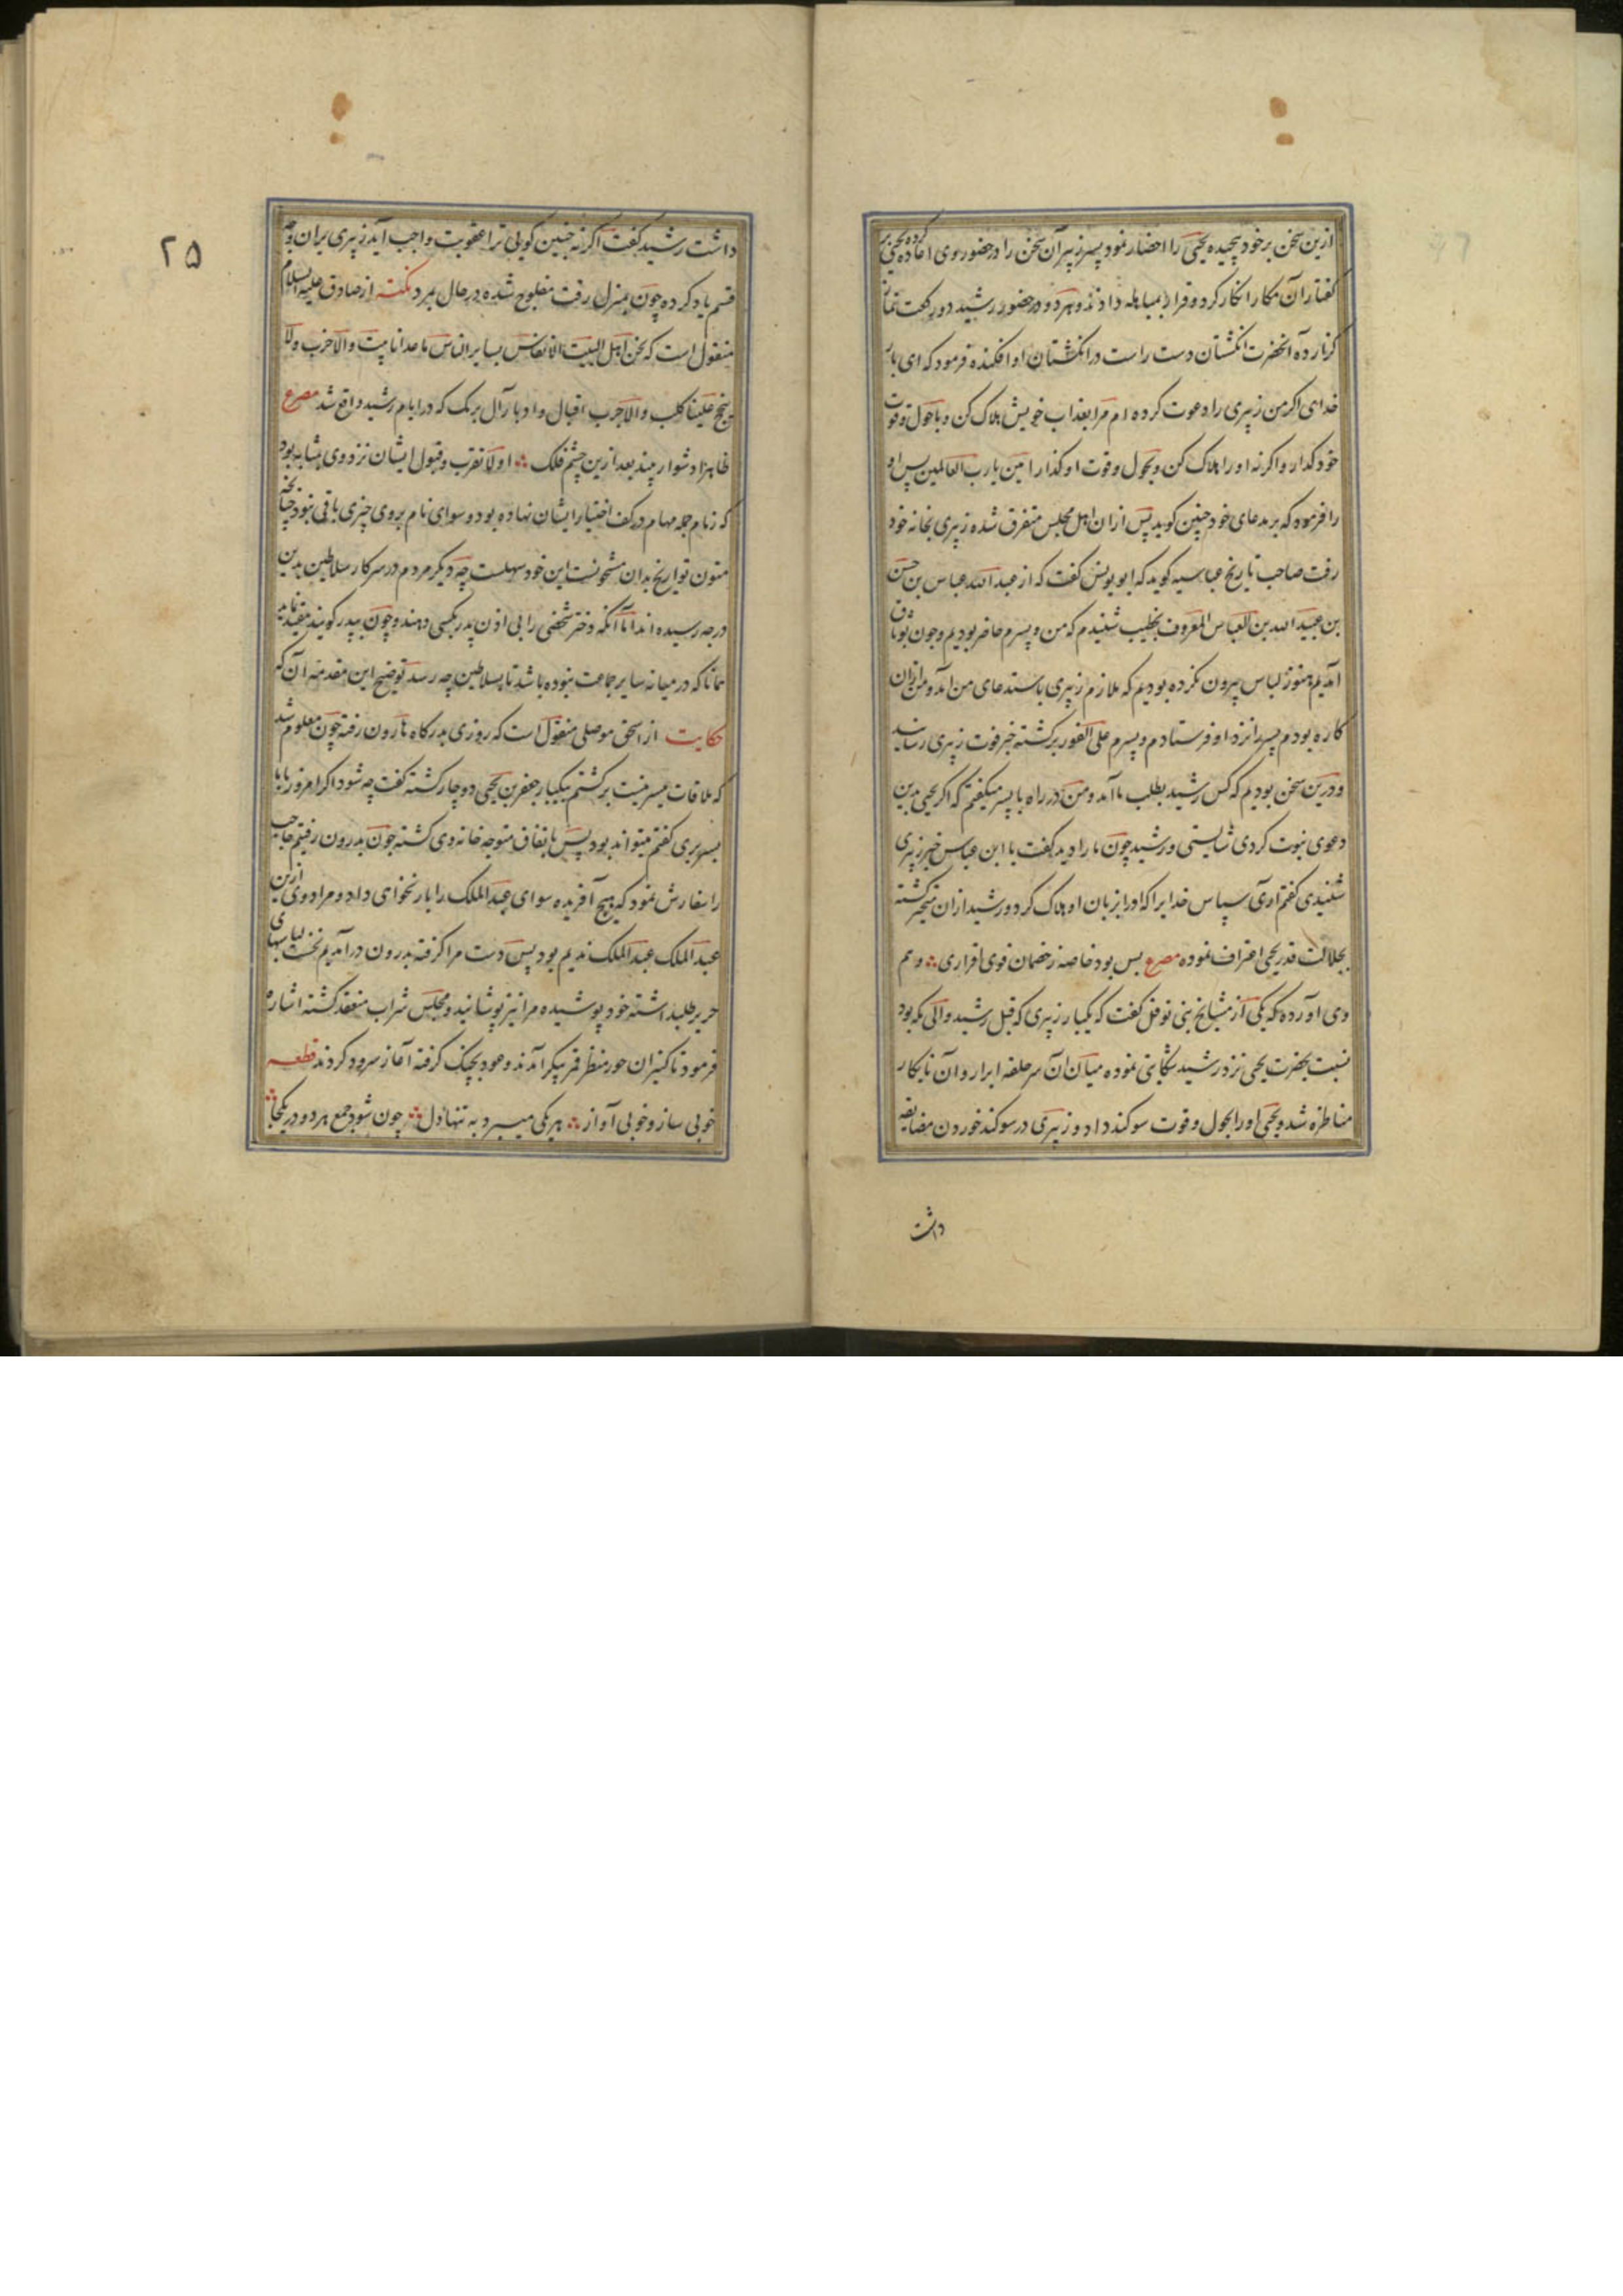 ازین سخن برخود پیچیده یحیی را احضار نمود پسر زبیر آن سخن را در حضور وی اعاده کرده یحیی بر
گفتار آن مکار انکار کرد و قرار بمباهله دادند و هردو در حضور رشید دو رکعت نماز
گزارده آنحضرت انگشتان دست راست در انگشتان او افکنده فرمود که ای بار
خدای اگر من زبیری را دعوت کرده ام مرا بعذاب خویش هلاک کن و با حول و قوت
خود گذار و اگرنه او را هلاک کن و بحول و قوت او گذار امین یا رب العالمین پس او
را فرمود که بر مدعای خود چنین گوید پس ازان اهل مجلس متفرق شده زبیری بخانه خود
رفت صاحب تاریخ عباسیه گوید که ابو یونس گفت که از عبدالله عباس بن حسن
بن عبیدالله بن العباس المعروف بخطیب شنیدم که من و پسرم حاضر بودیم و چون بوثاق
آمدیم هنوز لباس بیرون نکرده بودیم که ملازم زبیری باستدعای من آمد و من ازان
کاره بودم پسر را نزد او فرستادم و پسرم علی الفور برگشته خبر فوت زبیری رسانید
و درین سخن بودیم که کس رشید بطلب ما آمد و من در راه با پسر میگفتم که اگر یحیی بدین
دعوی نبوت کردی شایستی و رشید چون ما را دید گفت یا ابن عباس خبر زبیری
شنیدی گفتم آری سپاس خدایرا که او را بزبان او هلاک کرد و رشید ازان متحیر گشته
بجلالت قدر یحیی اعتراف نموده مصرع بس بود خاصه ز خصمان قوی اقراری ؞ و هم
وی آورده که یکی از مشایخ بنی نوفل گفت که یکبار زبیری که قبل رشید والی مکه بود
نسبت بحضرت یحیی نزد رشید شکایتی نموده میان آن سرحلقه ابرار و آن نابکار
مناظره شد و یحیی او را بحول و قوت سوگند داد و زبیری در سوگند خوردن مضایقه
داشت
۲۵
داشت رشید گفت اگر نه چنین گویی ترا عقوبت واجب آید زبیری بران وجه
قسم یاد کرده چون بمنزل رفت مفلوج شده در حال بمرد نکته از صادق علیه السلام
منقول است که نحن اهل البیت لا نقاس بسایر الناس ما عدانا بیت و الا خرب و لا
نبح علینا کلب و الا جرب اقبال و ادبار آل برمک که در ایام رشید واقع شد مصرع
ظاهرا دشوار بیند بعد ازین چشم فلک ؞ اولا تقرب و قبول ایشان نزد وی بمثابه بود
که زمام جمله مهام در کف اختیار ایشان نهاده بود و سوای نام بر وی چیزی باقی نبود چنانچه
متون تواریخ بدان مشحونست این خود سهلست چه دیگر مردم در سرکار سلاطین بدین
درجه رسیده اند اما آنکه دختر شخصی را بی اذن پدر بکسی دهند و چون بپدر گویند مقید نیاید
همانا که در میانه سایر جماعت نبوده باشد تا بسلاطین چه رسد توضیح این مقدمه آن که
حکایت از اسحق موصلی منقول است که روزی بدرگاه هارون رفته چون معلوم شد
که ملاقات میسر نیست برگشتم بیکبار جعفر بن یحیی دوچار گشته گفت چه شود اگر امروز با ما
بسر بری گفتم میتواند بود پس باتفاق متوجه خانه وی گشته چون بدرون رفتیم حاجب
را سفارش نمود که هیچ آفریده سوای عبدالملک را بار نخواهی داد و مراد وی ازین
عبدالملک عبدالملک ندیم بود پس دست مرا گرفته بدرون درآمدیم نخست لباسهای
حریر طلب داشته خود پوشیده مرا نیز پوشانید و مجلس شراب منعقد گشته اشاره
فرمود تا کنیزان حور منظر قمر پیکر آمدند و عود بچنگ گرفته آغاز سرود کردند قطعه
خوبی ساز و خوبی آواز ؞ هر یکی میبرد به تنها دل ؞ چون شود جمع هر دو در یکجا ؞